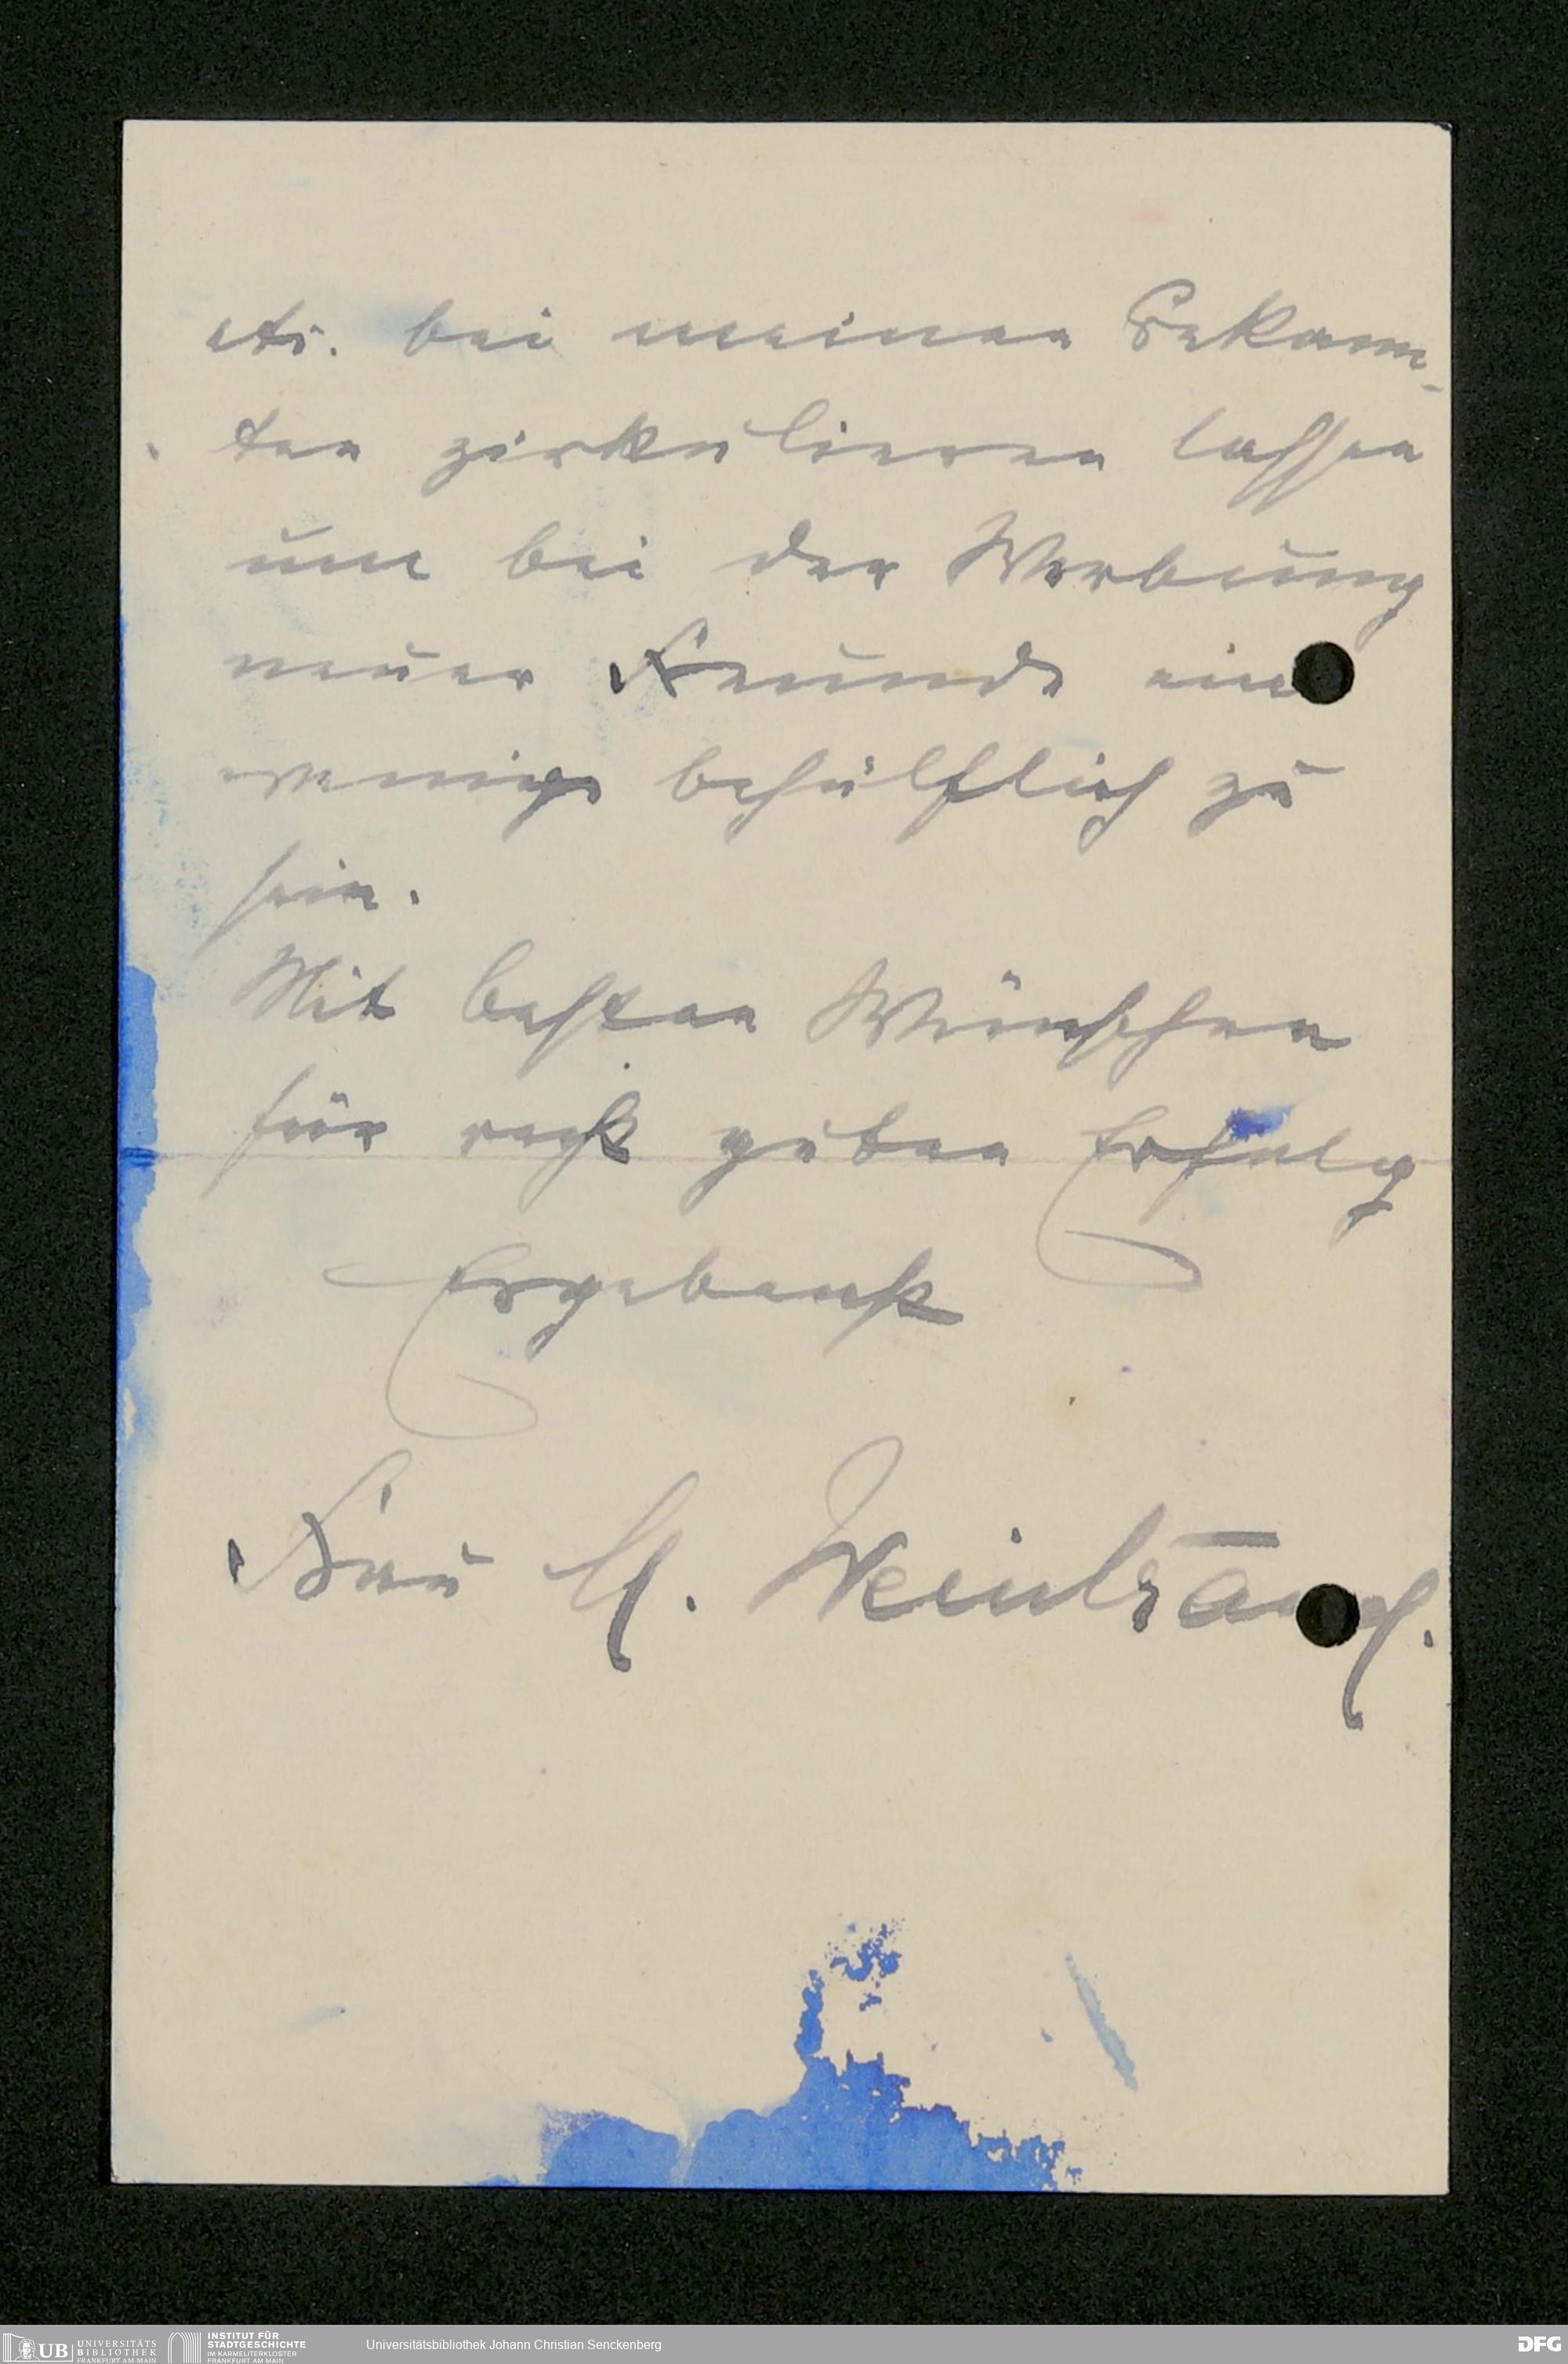 etc. bei meinen Bekann-
ten zirkulieren lassen
um bei der Werbung
neuer Freunde ein
wenig behülflich zu
sein.
Mit besten Wünschen
für recht guten Erfolg
Ergebenst
Frau M. Weintraud.
UB UNIVERSITÄTS
BIBLIOTHEK
FRANKFURT AM MAIN
INSTITUT FÜR
STADTGESCHICHTE
IM KARMELITERKLOSTER
FRANKFURT AM MAIN
Universitätsbibliothek Johann Christian Senckenberg
DFG